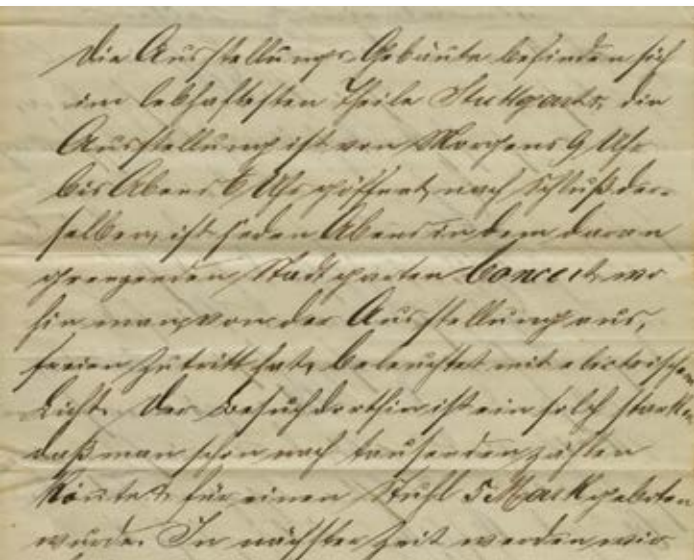 Die Ausstellungs-Gebäute befinden sich
im lebhaftesten Theile Stuttgarts, die
Ausstellung ist von Morgens 9 Uhr
bis Abens 6 Uhr göffnet, nach Schluß der-
selben, ist jeden Abens in dem daran
grenzenden Stadtgarten Concert, wo
hin man von der Ausstellung aus,
freien Zutritt hat, beleuchtet mit electrischem
Licht. Der Besuch dorthin ist ein solch starker
daß man schon nach tausenden zählen
könte für einen Stuhl 5 Mark geboten
wurde. In nächster Zeit werden wir